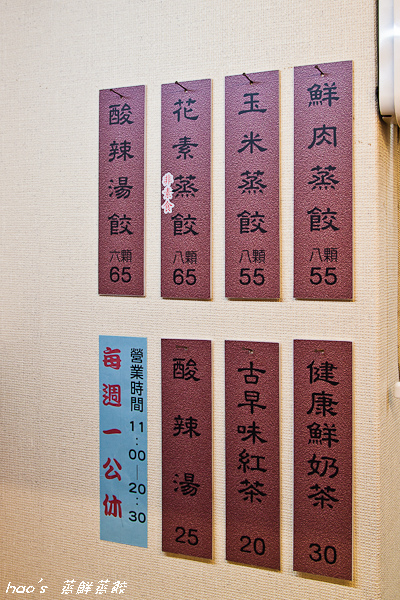 鮮肉蒸餃
八顆
55
玉米蒸餃
八顆
55
花素蒸餃
非素食
八顆
65
酸辣湯餃
六顆
65
健康鮮奶茶
30
古早味紅茶
20
酸辣湯
25
營業時間 11:00—20:30
每週一公休
hao's 蒸鮮蒸餃